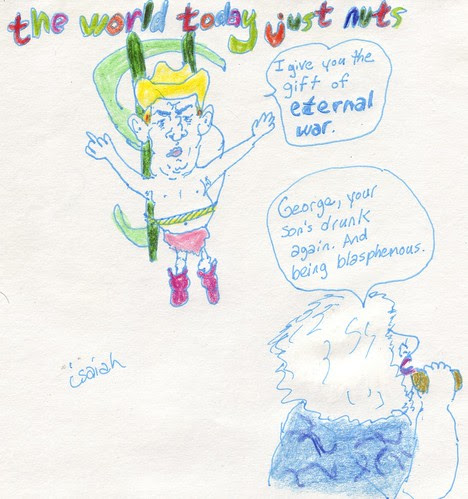 the world today just nuts
I give you the
gift of
eternal
war.
George, your
son's drunk
again. And
being blasphemous.
isaiah